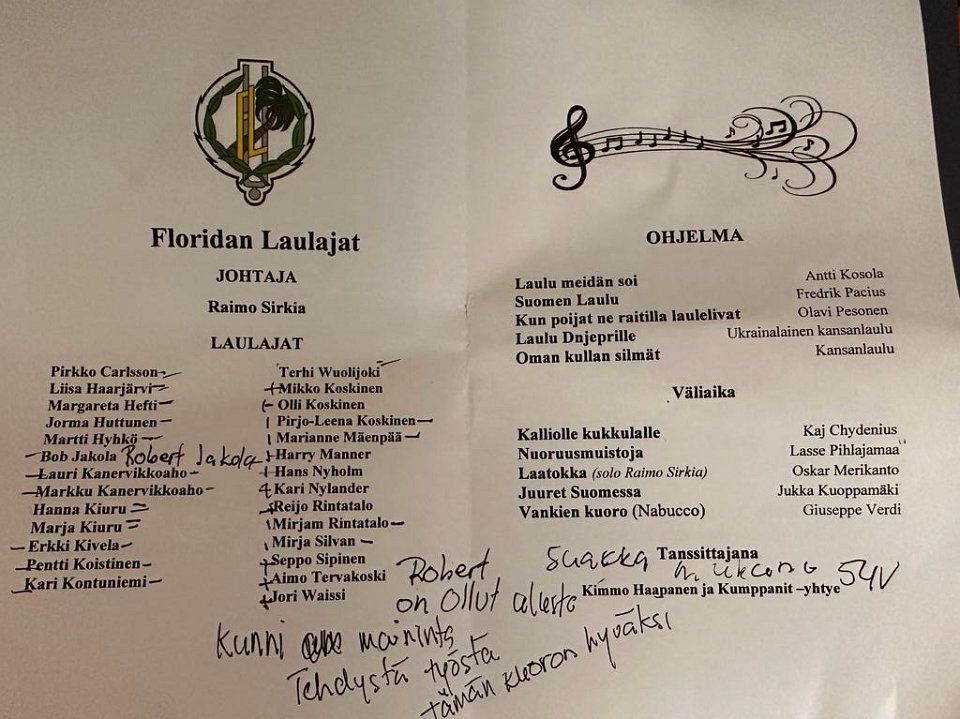 FL
Floridan Laulajat
JOHTAJA
Raimo Sirkia
LAULAJAT
Pirkko Carlsson
Liisa Haarjärvi
Margareta Hefti
Jorma Huttunen
Martti Hyhkö
Bob Jakola Robert Jakola
Lauri Kanervikkoaho
Markku Kanervikkoaho
Hanna Kiuru
Marja Kiuru
Erkki Kivela
Pentti Koistinen
Kari Kontuniemi
Terhi Wuolijoki
Mikko Koskinen
Olli Koskinen
Pirjo-Leena Koskinen
Marianne Mäenpää
Harry Manner
Hans Nyholm
Kari Nylander
Reijo Rintatalo
Mirjam Rintatalo
Mirja Silvan
Seppo Sipinen
Aimo Tervakoski
Jori Waissi
OHJELMA
Laulu meidän soi Antti Kosola
Suomen Laulu Fredrik Pacius
Kun poijat ne raitilla laulelivat Olavi Pesonen
Laulu Dnjeprille Ukrainalainen kansanlaulu
Oman kullan silmät Kansanlaulu
Väliaika
Kalliolle kukkulalle Kaj Chydenius
Nuoruusmuistoja Lasse Pihlajamaa
Laatokka (solo Raimo Sirkia) Oskar Merikanto
Juuret Suomessa Jukka Kuoppamäki
Vankien kuoro (Nabucco) Giuseppe Verdi
Tanssittajana
Kimmo Haapanen ja Kumppanit –yhtye
Robert
on Ollut
Kunni maininta
Tehdystä työstä
tämän kuoron hyväksi
54V